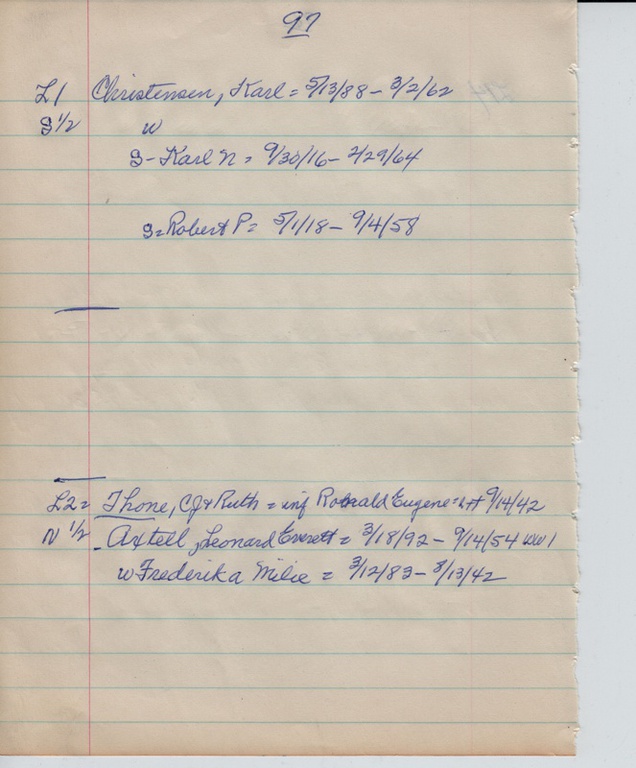 97
L1 Christensen, Karl = 5/13/88 - 3/2/62
S 1/2 w
S - Karl N = 9/30/16 - 2/29/64
S = Robert P = 5/1/18 - 9/4/58
L2 = Thone, CJ & Ruth = inf Eugene = 9/14/42
N 1/2 - Axtell, Leonard Everett = 3/18/92 - 9/14/54 WW1
w Frederika Milie = 3/12/83 - 8/13/42